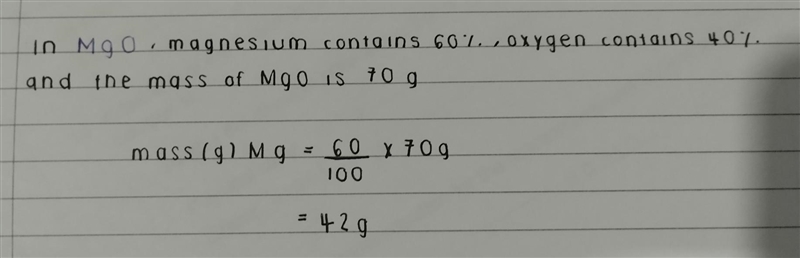 In MgO, magnesium contains 60%, oxygen contains 40%.
and the mass of MgO is 70 g
mass(g) Mg = 60/100 x 70g
= 42g